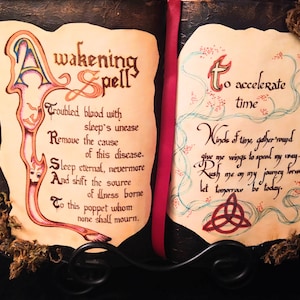 Awakening
Spell
Troubled blood with
sleep's unease
Remove the cause
of this disease.
Sleep eternal, nevermore
And shift the source
of illness borne
To this poppet whom
none shall mourn.
to accelerate
time
Winds of time gather round
give me wings to speed my way.
Rush me on my journey forward
let tomorrow be today.